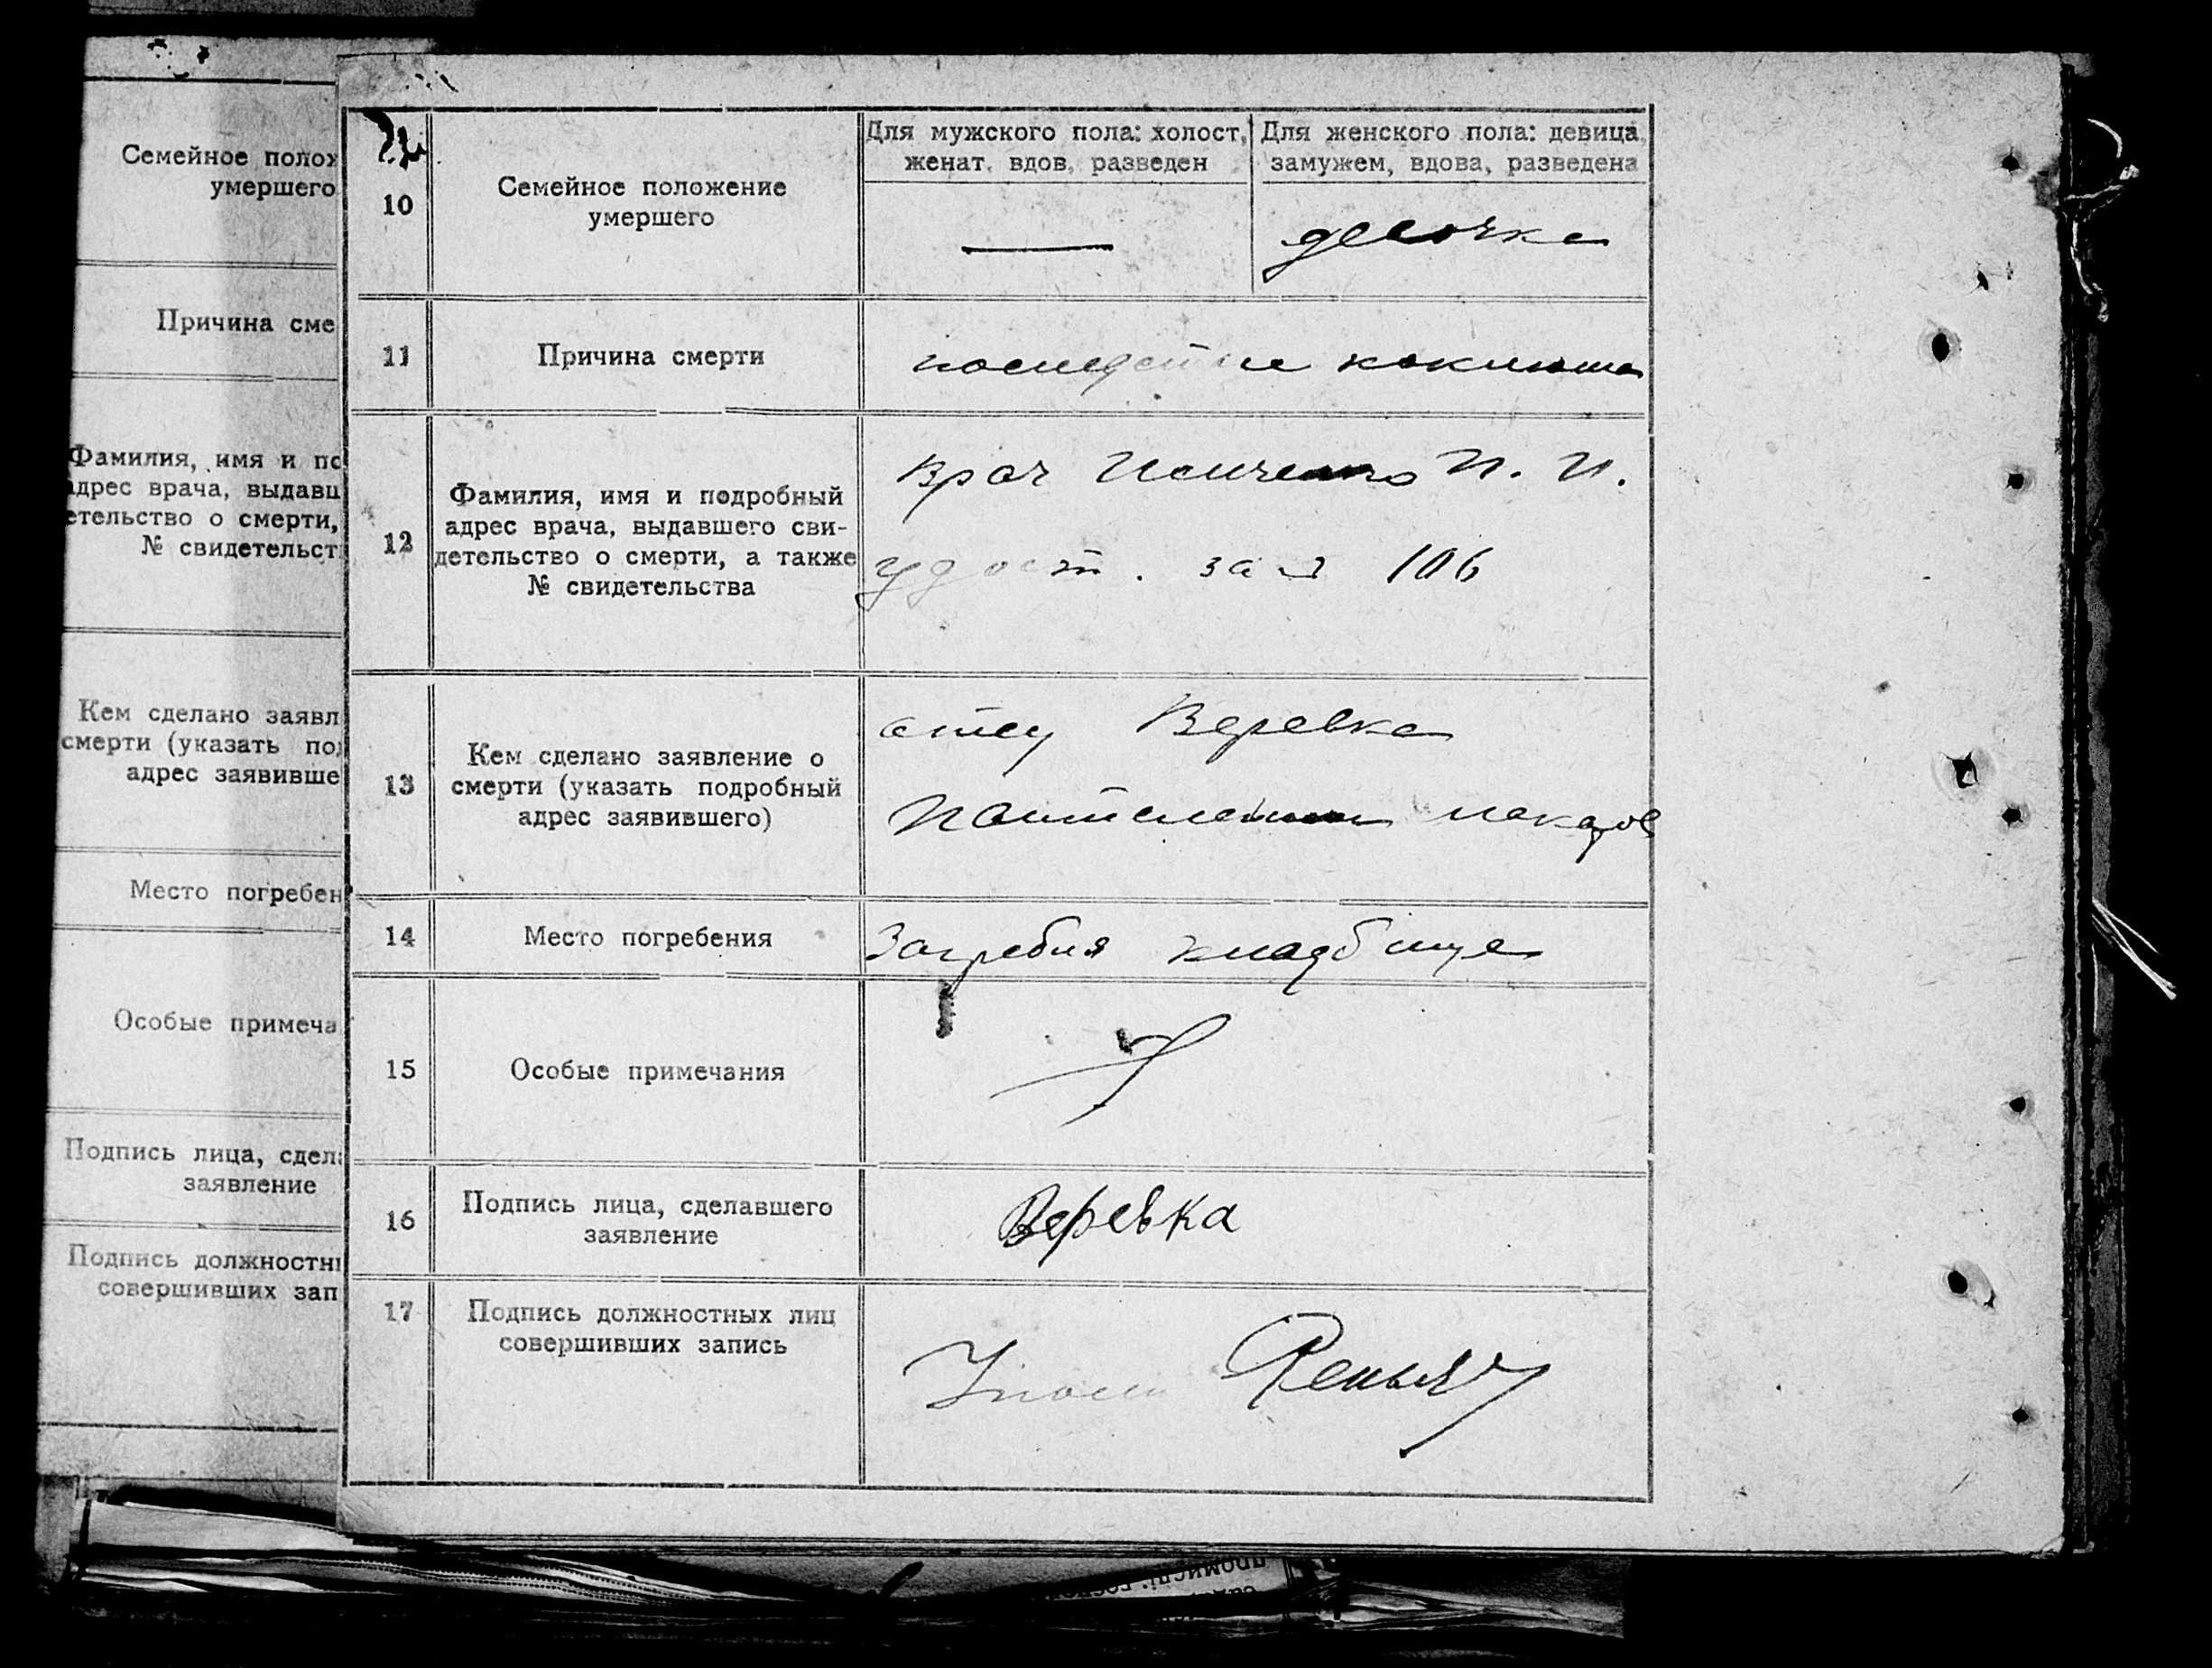 Семейное полож
умершего
Причина сме
Фамилия, имя и по
адрес врача, выдавш
етельство о смерти,
№ свидетельст
Кем сделано заявл
смерти (указать по
адрес заявивше
Место погребен
Особые примеча
Подпись лица, сдел
заявление
Подпись должностн
совершивших зап
10
Семейное положение
умершего
Для мужского пола: холост,
женат, вдов, разведен
Для женского пола: девица
замужем, вдова, разведена
—
девочка
11
Причина смерти
последствие коклюша
12
Фамилия, имя и подробный
адрес врача, выдавшего сви-
детельство о смерти, а также
№ свидетельства
врач И. И.
удост. за № 106
13
Кем сделано заявление о
смерти (указать подробный
адрес заявившего)
отец Веревка
14
Место погребения
Загребля кладбище
15
Особые примечания
16
Подпись лица, сделавшего
заявление
Веревка
17
Подпись должностных лиц
совершивших запись